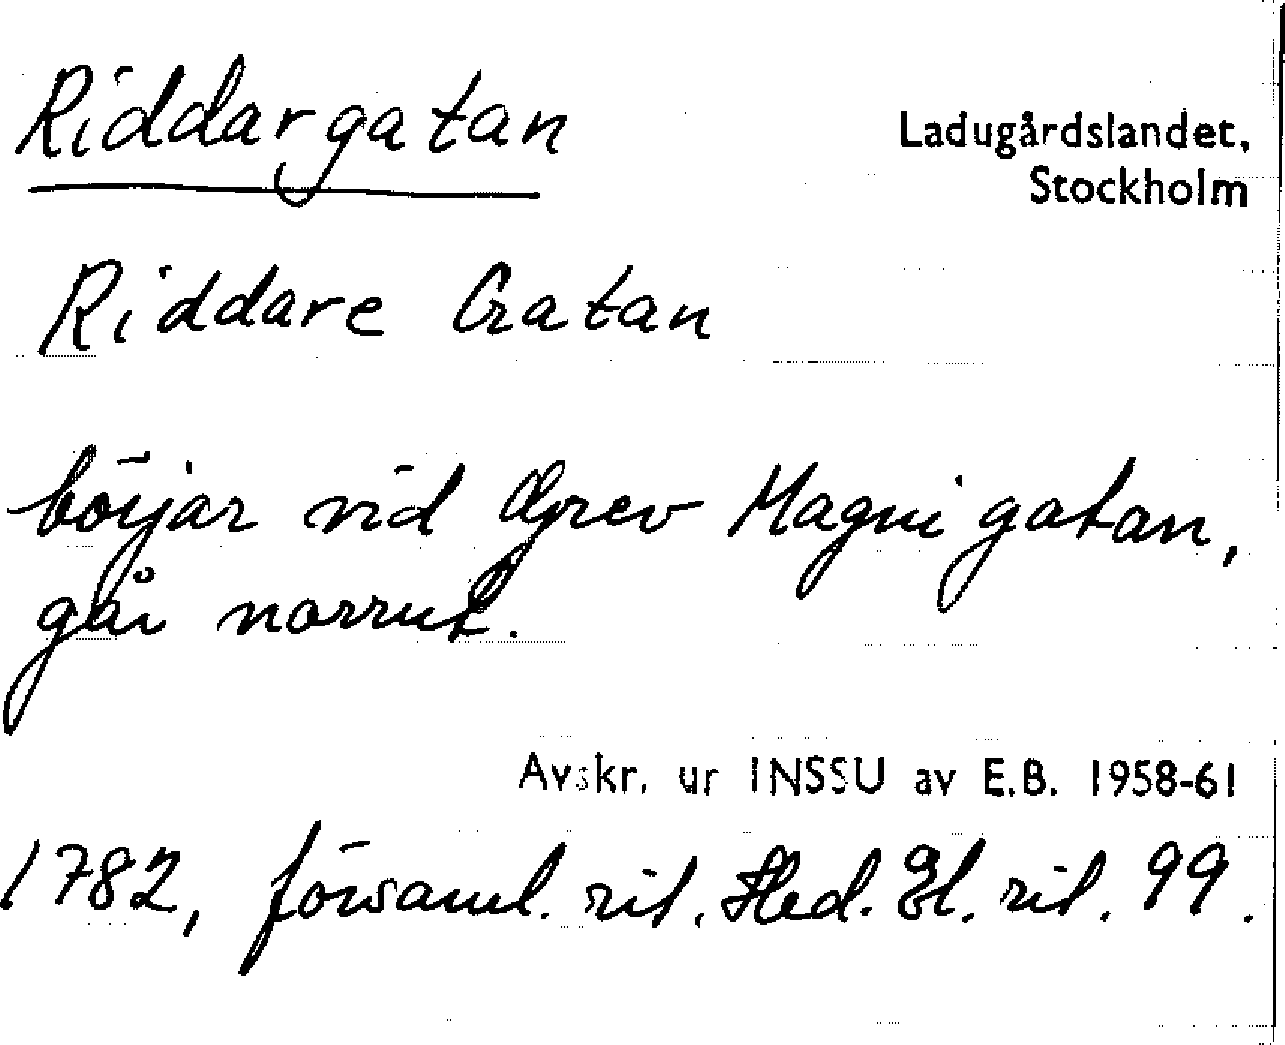 Riddargatan
Ladugårdslandet,
Stockholm
Riddare Gatan
börjar vid Grev Magni gatan,
går norrut.
Avskr. ur INSSU av E.B. 1958-61
1782, församl. rit. Hed. El. rit. 99.